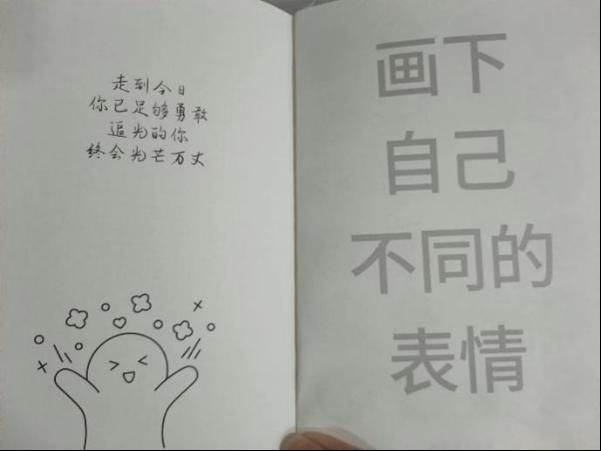 走到今日
你已足够勇敢
追光的你
终会光芒万丈
画下
自己
不同的
表情